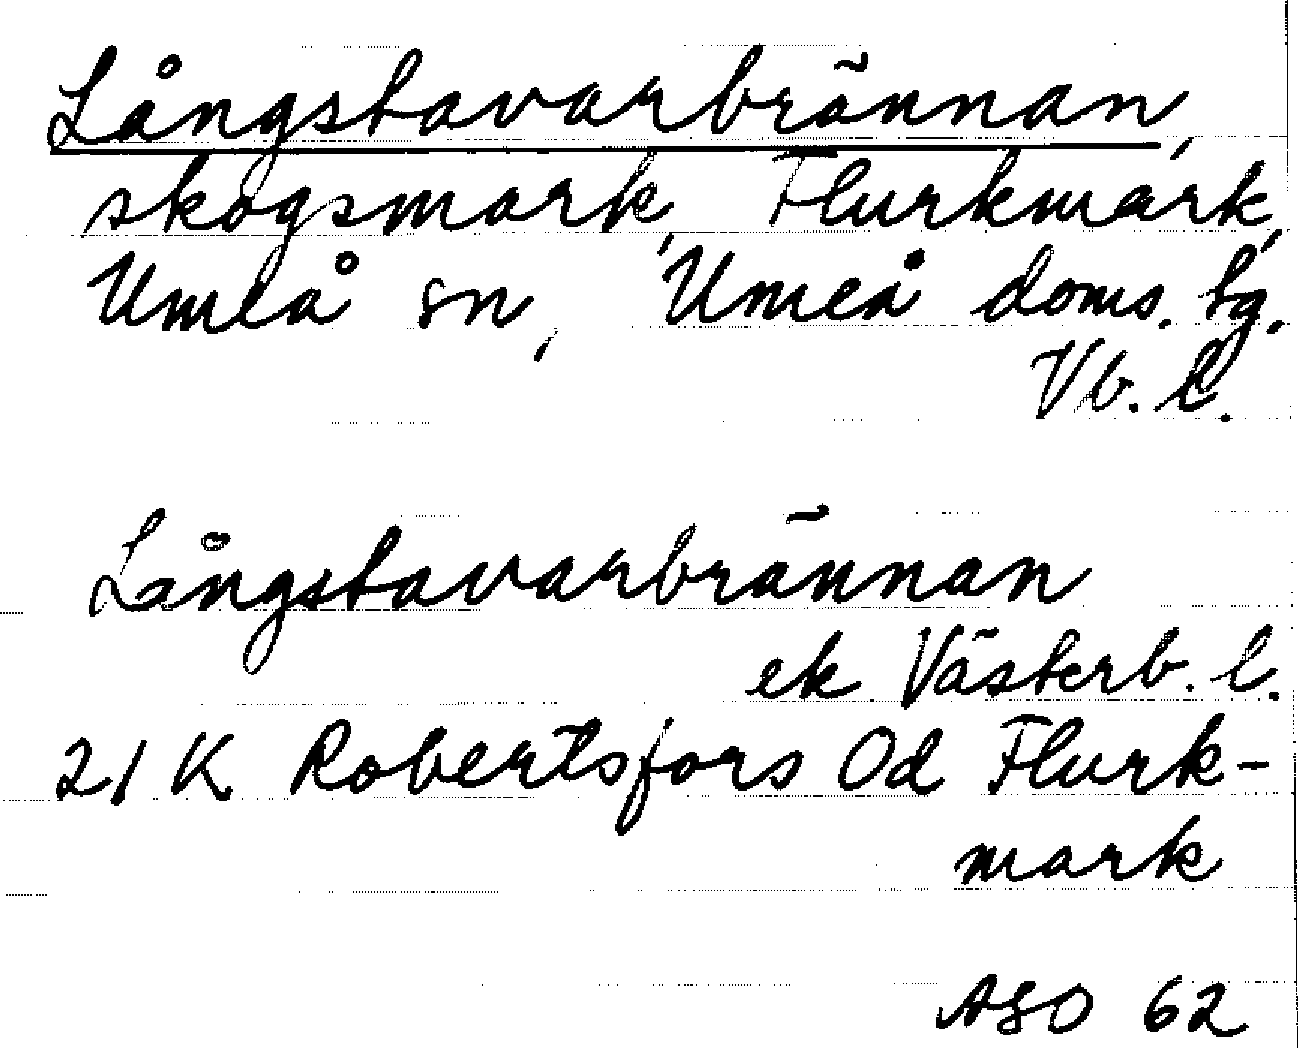 Långstavarbrännan,
skogsmark, Flurkmark,
Umeå sn, Umeå doms. tg.
Vb. l.
Långstavarbrännan
ek Västerb. l.
21 K Robertsfors Od Flurk-
mark
ASO 62